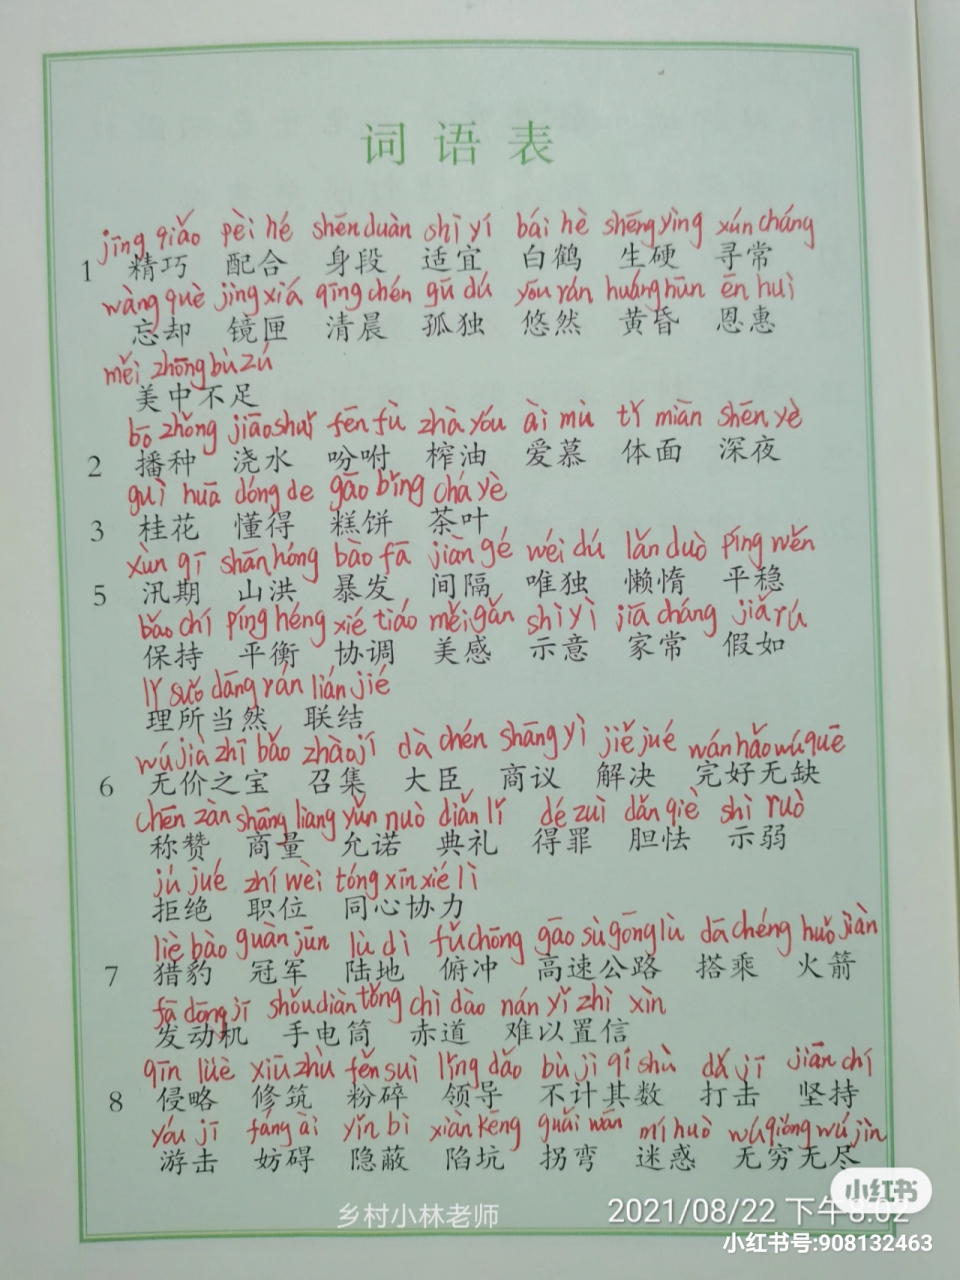 词语表
jīng qiǎo pèi hé shēn duàn shì yí bái hè shēng yìng xún cháng
1 精巧 配合 身段 适宜 白鹤 生硬 寻常
wàng què jìng xiá qīng chén gū dú yōu rán huáng hūn ēn huì
忘却 镜匣 清晨 孤独 悠然 黄昏 恩惠
měi zhōng bù zú
美中不足
bō zhǒng jiāo shuǐ fēn fù zhà yóu ài mù tǐ miàn shēn yè
2 播种 浇水 吩咐 榨油 爱慕 体面 深夜
guì huā dóng de gāo bǐng chá yè
3 桂花 懂得 糕饼 茶叶
xùn qī shān hóng bào fā jiàn gé wéi dú lǎn duò píng wěn
5 汛期 山洪 暴发 间隔 唯独 懒惰 平稳
bǎo chí píng héng xié tiáo měi gǎn shì yì jiā cháng jiǎ rú
保持 平衡 协调 美感 示意 家常 假如
lǐ suǒ dāng rán lián jié
理所当然 联结
wú jià zhī bǎo zhào jí dà chén shāng yì jiě jué wán hǎo wú quē
6 无价之宝 召集 大臣 商议 解决 完好无缺
chēn zàn shāng liang yǔn nuò diǎn lǐ dé zuì dǎn qiè shì ruò
称赞 商量 允诺 典礼 得罪 胆怯 示弱
jú jué zhí wèi tóng xīn xié lì
拒绝 职位 同心协力
liè bào guàn jūn lù dì fǔ chōng gāo sù gōng lù dā chéng huǒ jiàn
7 猎豹 冠军 陆地 俯冲 高速公路 搭乘 火箭
fā dōng jī shǒu diàn tǒng chì dào nán yǐ zhì xìn
发动机 手电筒 赤道 难以置信
qīn lüè xiū zhù fěn suì lǐng dǎo bù jì qí shù dǎ jī jiān chí
8 侵略 修筑 粉碎 领导 不计其数 打击 坚持
yóu jī fáng ài yǐn bì xiàn kēng guǎi wān mí huò wú qióng wú jìn
游击 妨碍 隐蔽 陷坑 拐弯 迷惑 无穷无尽
小红书
乡村小林老师 2021/08/22 下午8:02
小红书号:908132463